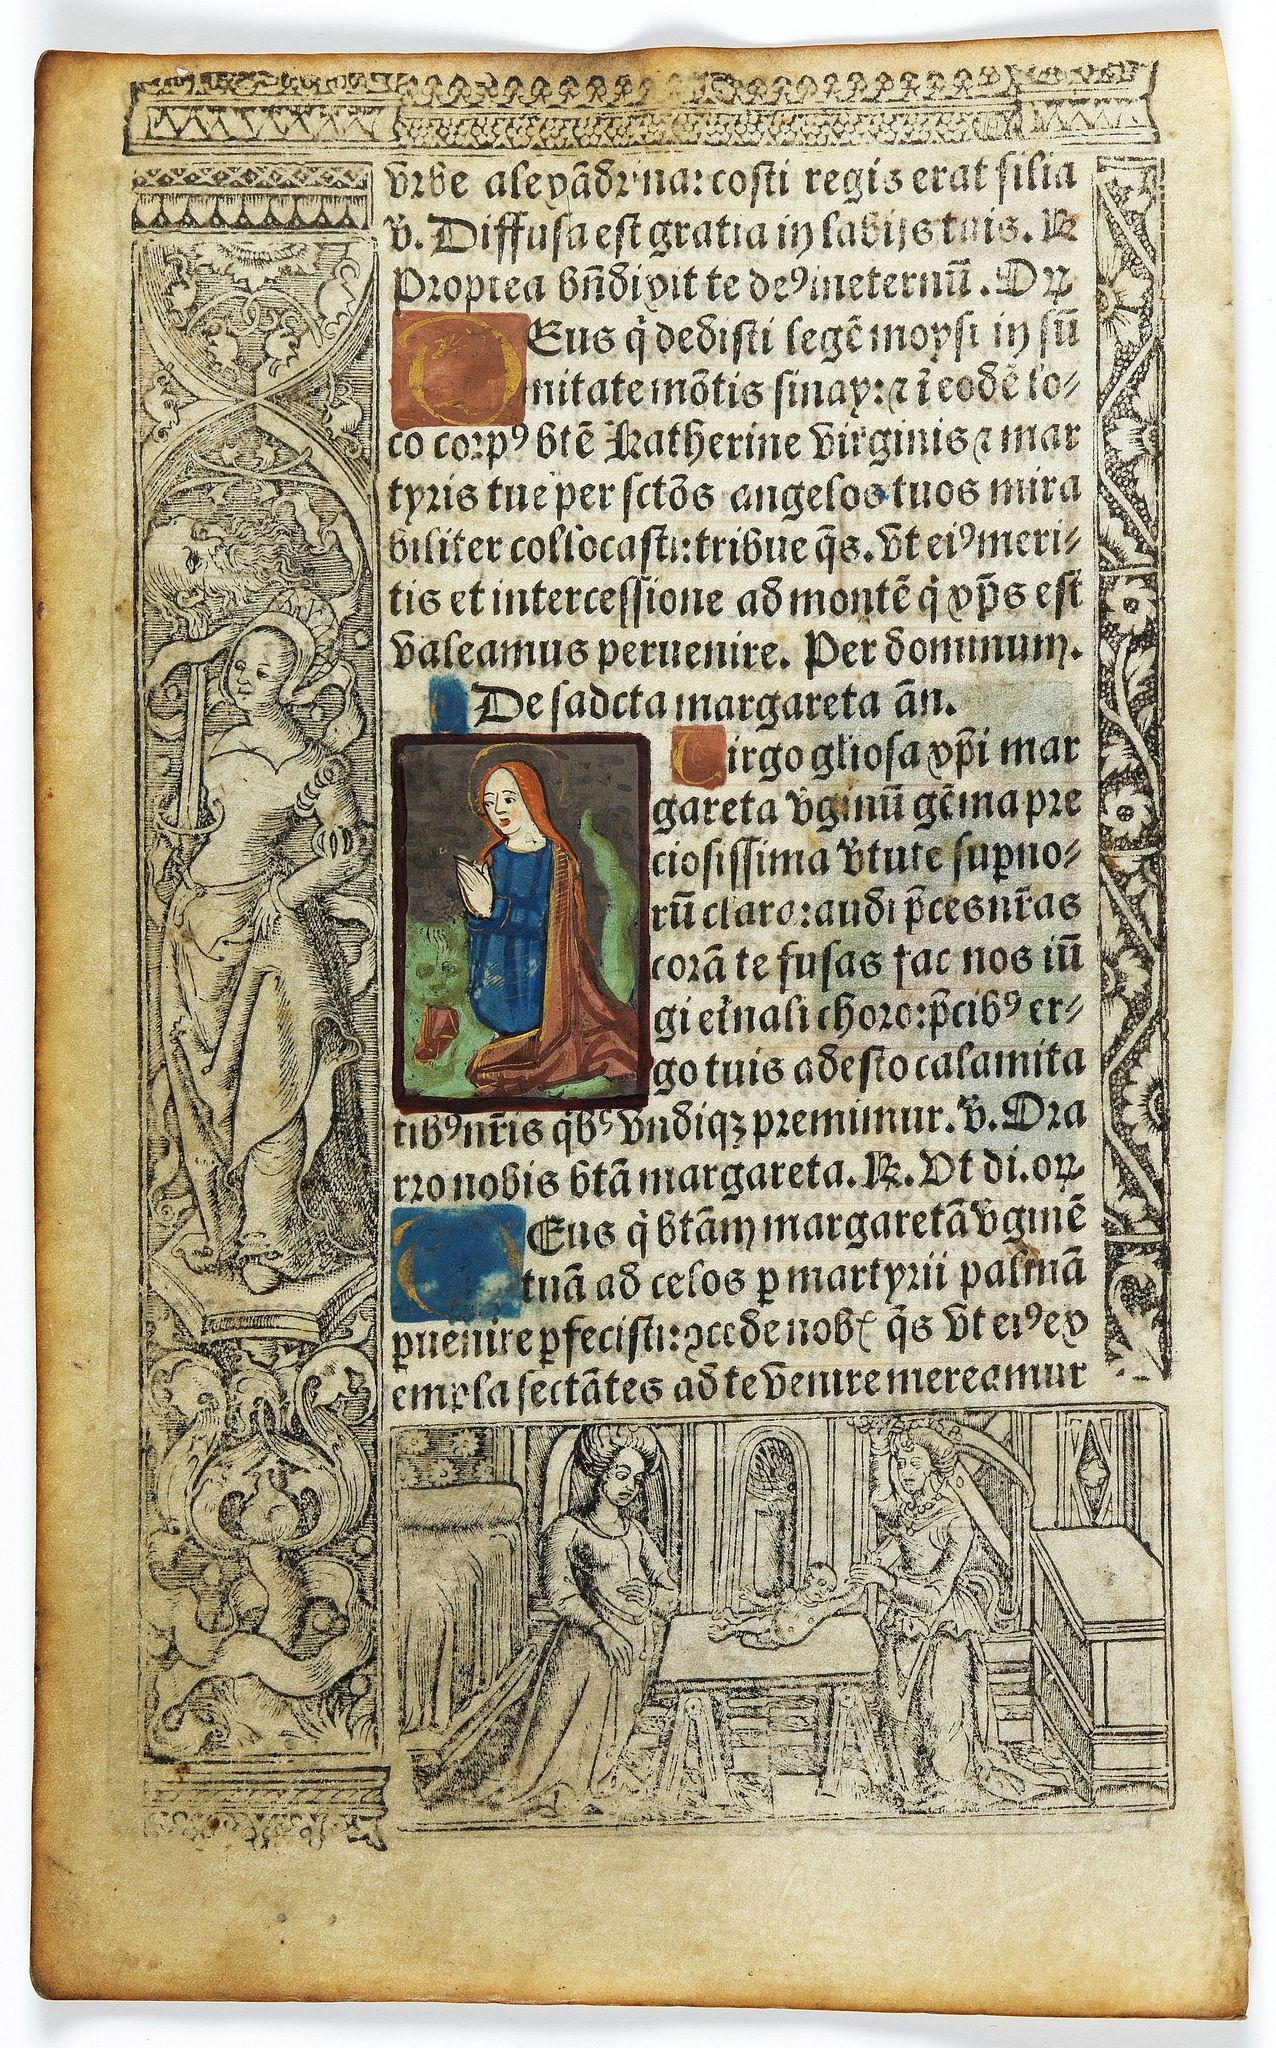 vrbe alexādrina: costi regis erat filia
v̄. Diffusa est gratia in labijs tuis. ℟
Proptea bn̄dixit te de⁹ ineternū. Oꝝ
Eus q̇ dedisti legē moysi in sū
mitate mōtis sinay: ⁊ ī eodē lo⸗
co corp⁹ btē Katherine virginis ⁊ mar
tyris tue per sctōs angelos tuos mira
biliter collocasti: tribue q̄s. vt ei⁹ meri⸗
tis et intercessione ad montē q̇ xp̄s est
valeamus peruenire. Per dominum.
De sadcta margareta an̄.
Virgo gliosa xp̄i mar
gareta v̄ginū gēma pre
ciosissima v̄tute sup̱no⸗
rū claro: audi p̄ces nr̄as
corā te fusas fac nos iū
gi et̄nali choro: p̄cib⁹ er⸗
go tuis adesto calamita
tib⁹ nr̄is q̇bˢ vndiqꝫ premimur. v̄. Ora
pro nobis btā margareta. ℟. Vt di. oꝝ
Eus q̇ btām margaretā v̄ginē
tuā ad celos ꝑ martyrii palmā
ꝑuenire ꝑfecisti: ꝯcede nob᷒ q̄s vt ei⁹ ex
empla sectātes ad te venire mereamur